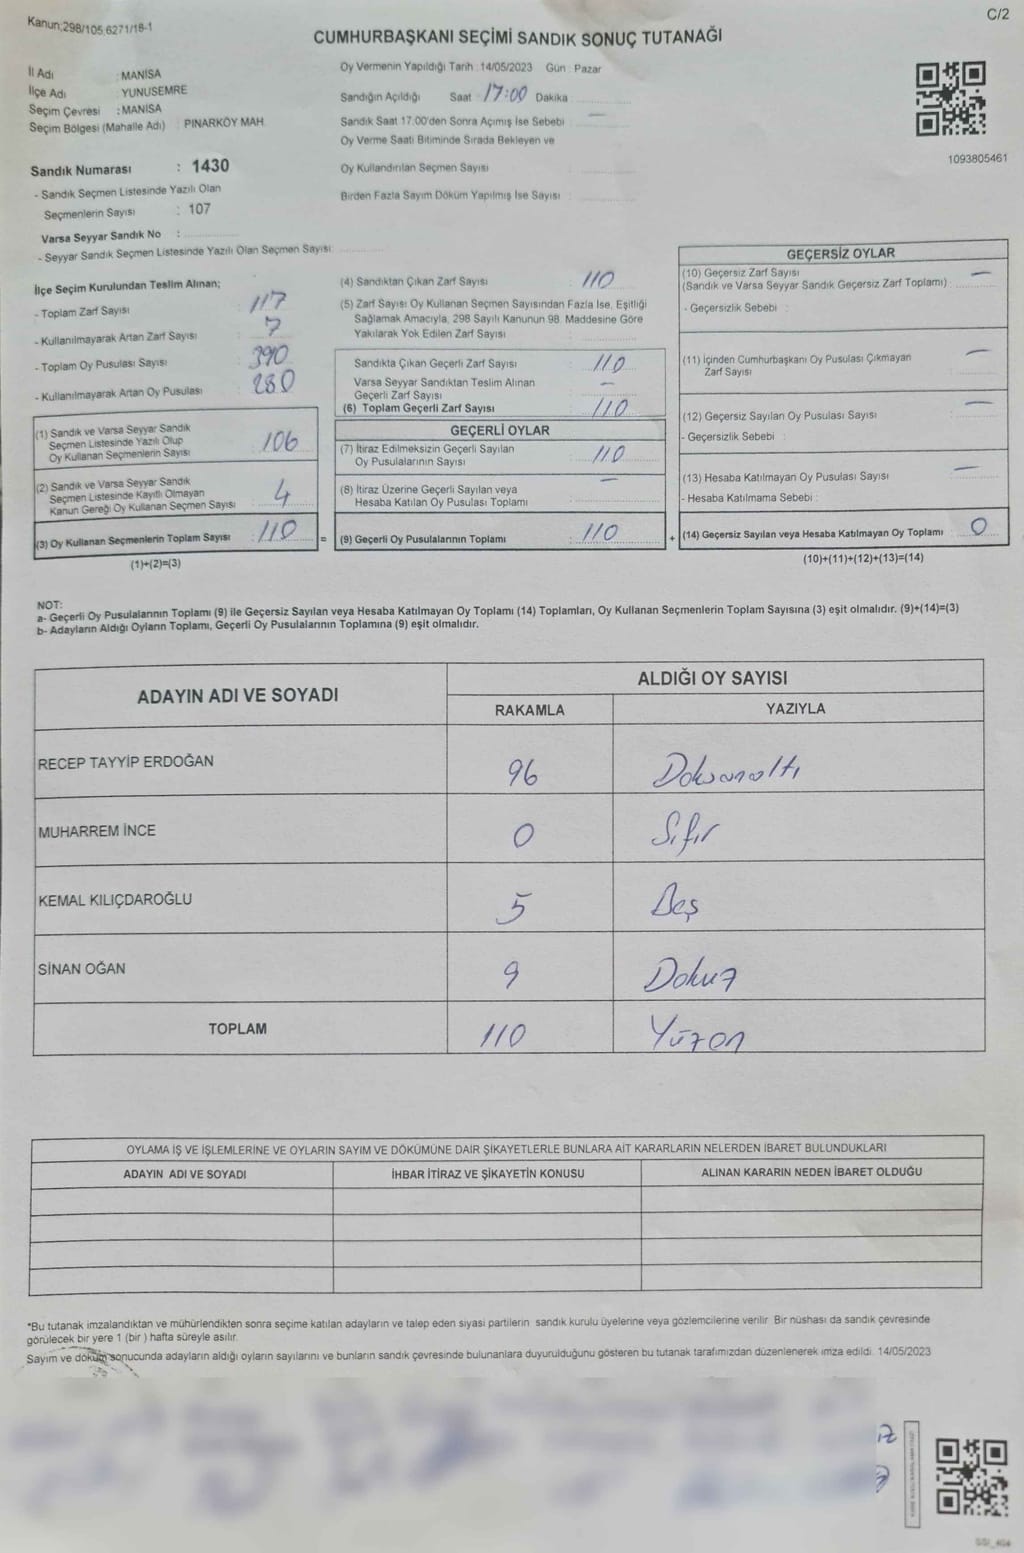 Kanun;298/105,6271/18-1
C/2
CUMHURBAŞKANI SEÇİMİ SANDIK SONUÇ TUTANAĞI
İl Adı : MANİSA
İlçe Adı : YUNUSEMRE
Seçim Çevresi : MANİSA
Seçim Bölgesi (Mahalle Adı) : PINARKÖY MAH.
Sandık Numarası : 1430
- Sandık Seçmen Listesinde Yazılı Olan
Seçmenlerin Sayısı : 107
Varsa Seyyar Sandık No :
- Seyyar Sandık Seçmen Listesinde Yazılı Olan Seçmen Sayısı:
Oy Vermenin Yapıldığı Tarih : 14/05/2023 Gün : Pazar
Sandığın Açıldığı Saat : 17:00 Dakika
Sandık Saat 17.00'den Sonra Açımış İse Sebebi : —
Oy Verme Saati Bitiminde Sırada Bekleyen ve
Oy Kullandırılan Seçmen Sayısı :
Birden Fazla Sayım Döküm Yapılmış İse Sayısı :
1093805461
İlçe Seçim Kurulundan Teslim Alınan;
- Toplam Zarf Sayısı : 117
- Kullanılmayarak Artan Zarf Sayısı : 7
- Toplam Oy Pusulası Sayısı : 390
- Kullanılmayarak Artan Oy Pusulası : 280
(1) Sandık ve Varsa Seyyar Sandık
Seçmen Listesinde Yazılı Olup
Oy Kullanan Seçmenlerin Sayısı : 106
(2) Sandık ve Varsa Seyyar Sandık
Seçmen Listesinde Kayıtlı Olmayan
Kanun Gereği Oy Kullanan Seçmen Sayısı : 4
(3) Oy Kullanan Seçmenlerin Toplam Sayısı : 110 =
(1)+(2)=(3)
(4) Sandıktan Çıkan Zarf Sayısı : 110
(5) Zarf Sayısı Oy Kullanan Seçmen Sayısından Fazla İse, Eşitliği
Sağlamak Amacıyla, 298 Sayılı Kanunun 98. Maddesine Göre
Yakılarak Yok Edilen Zarf Sayısı :
Sandıkta Çıkan Geçerli Zarf Sayısı : 110
Varsa Seyyar Sandıktan Teslim Alınan
Geçerli Zarf Sayısı : —
(6) Toplam Geçerli Zarf Sayısı : 110
GEÇERLİ OYLAR
(7) İtiraz Edilmeksizin Geçerli Sayılan
Oy Pusulalarının Sayısı : 110
(8) İtiraz Üzerine Geçerli Sayılan veya
Hesaba Katılan Oy Pusulası Toplamı : —
(9) Geçerli Oy Pusulalarının Toplamı : 110 +
GEÇERSİZ OYLAR
(10) Geçersiz Zarf Sayısı : —
(Sandık ve Varsa Seyyar Sandık Geçersiz Zarf Toplamı)
- Geçersizlik Sebebi :
(11) İçinden Cumhurbaşkanı Oy Pusulası Çıkmayan
Zarf Sayısı : —
(12) Geçersiz Sayılan Oy Pusulası Sayısı : —
- Geçersizlik Sebebi :
(13) Hesaba Katılmayan Oy Pusulası Sayısı : —
- Hesaba Katılmama Sebebi :
(14) Geçersiz Sayılan veya Hesaba Katılmayan Oy Toplamı : 0
(10)+(11)+(12)+(13)=(14)
NOT:
a- Geçerli Oy Pusulalarının Toplamı (9) ile Geçersiz Sayılan veya Hesaba Katılmayan Oy Toplamı (14) Toplamları, Oy Kullanan Seçmenlerin Toplam Sayısına (3) eşit olmalıdır. (9)+(14)=(3)
b- Adayların Aldığı Oyların Toplamı, Geçerli Oy Pusulalarının Toplamına (9) eşit olmalıdır.
ADAYIN ADI VE SOYADI
ALDIĞI OY SAYISI
RAKAMLA YAZIYLA
RECEP TAYYİP ERDOĞAN 96 Doksanaltı
MUHARREM İNCE 0 Sıfır
KEMAL KILIÇDAROĞLU 5 Beş
SİNAN OĞAN 9 Dokuz
TOPLAM 110 Yüzon
OYLAMA İŞ VE İŞLEMLERİNE VE OYLARIN SAYIM VE DÖKÜMÜNE DAİR ŞİKAYETLERLE BUNLARA AİT KARARLARIN NELERDEN İBARET BULUNDUKLARI
ADAYIN ADI VE SOYADI İHBAR İTİRAZ VE ŞİKAYETİN KONUSU ALINAN KARARIN NEDEN İBARET OLDUĞU
*Bu tutanak imzalandıktan ve mühürlendikten sonra seçime katılan adayların ve talep eden siyasi partilerin sandık kurulu üyelerine veya gözlemcilerine verilir. Bir nüshası da sandık çevresinde
görülecek bir yere 1 (bir ) hafta süreyle asılır.
Sayım ve döküm sonucunda adayların aldığı oyların sayılarını ve bunların sandık çevresinde bulunanlara duyurulduğunu gösteren bu tutanak tarafımızdan düzenlenerek imza edildi. 14/05/2023